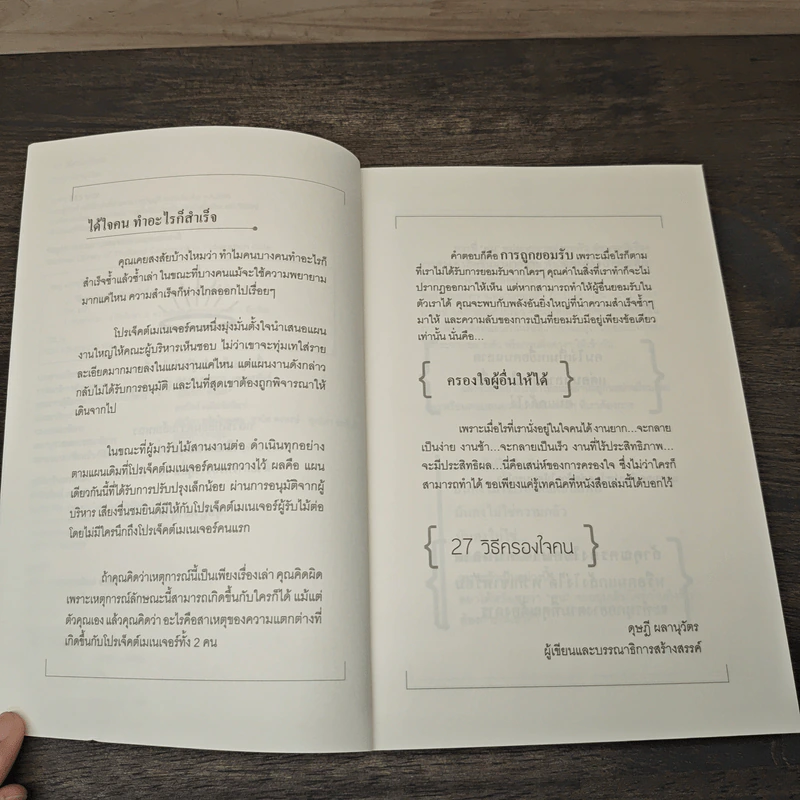 ได้ใจคน ทำอะไรก็สำเร็จ
คุณเคยสงสัยบ้างไหมว่า ทำไมคนบางคนทำอะไรก็
สำเร็จซ้ำแล้วซ้ำเล่า ในขณะที่บางคนแม้จะใช้ความพยายาม
มากแค่ไหน ความสำเร็จก็ห่างไกลออกไปเรื่อยๆ
โปรเจ็คต์เมเนเจอร์คนหนึ่งมุ่งมั่นตั้งใจนำเสนอแผน
งานใหญ่ให้คณะผู้บริหารเห็นชอบ ไม่ว่าเขาจะทุ่มเทใส่ราย
ละเอียดมากมายลงในแผนงานแค่ไหน แต่แผนงานดังกล่าว
กลับไม่ได้รับการอนุมัติ และในที่สุดเขาต้องถูกพิจารณาให้
เดินจากไป
ในขณะที่ผู้มารับไม้สานงานต่อ ดำเนินทุกอย่าง
ตามแผนเดิมที่โปรเจ็คต์เมเนเจอร์คนแรกวางไว้ ผลคือ แผน
เดียวกันนี้ที่ได้รับการปรับปรุงเล็กน้อย ผ่านการอนุมัติจากผู้
บริหาร เสียงชื่นชมยินดีมีให้กับโปรเจ็คต์เมเนเจอร์ผู้รับไม้ต่อ
โดยไม่มีใครนึกถึงโปรเจ็คต์เมเนเจอร์คนแรก
ถ้าคุณคิดว่าเหตุการณ์นี้เป็นเพียงเรื่องเล่า คุณคิดผิด
เพราะเหตุการณ์ลักษณะนี้สามารถเกิดขึ้นกับใครก็ได้ แม้แต่
ตัวคุณเอง แล้วคุณคิดว่า อะไรคือสาเหตุของความแตกต่างที่
เกิดขึ้นกับโปรเจ็คต์เมเนเจอร์ทั้ง 2 คน
คำตอบก็คือ การถูกยอมรับ เพราะเมื่อไรก็ตาม
ที่เราไม่ได้รับการยอมรับจากใครๆ คุณค่าในสิ่งที่เราทำก็จะไม่
ปรากฏออกมาให้เห็น แต่หากสามารถทำให้ผู้อื่นยอมรับใน
ตัวเราได้ คุณจะพบกับพลังอันยิ่งใหญ่ที่นำความสำเร็จซ้ำๆ
มาให้ และความลับของการเป็นที่ยอมรับมีอยู่เพียงข้อเดียว
เท่านั้น นั่นคือ...
{ ครองใจผู้อื่นให้ได้ }
เพราะเมื่อไรที่เรานั่งอยู่ในใจคนได้ งานยาก...จะกลาย
เป็นง่าย งานช้า...จะกลายเป็นเร็ว งานที่ไร้ประสิทธิภาพ...
จะมีประสิทธิผล...นี่คือเสน่ห์ของการครองใจ ซึ่งไม่ว่าใครก็
สามารถทำได้ ขอเพียงแค่รู้เทคนิคที่หนังสือเล่มนี้ได้บอกไว้
{ 27 วิธีครองใจคน }
ดุษฎี ผลานุวัตร
ผู้เขียนและบรรณาธิการสร้างสรรค์